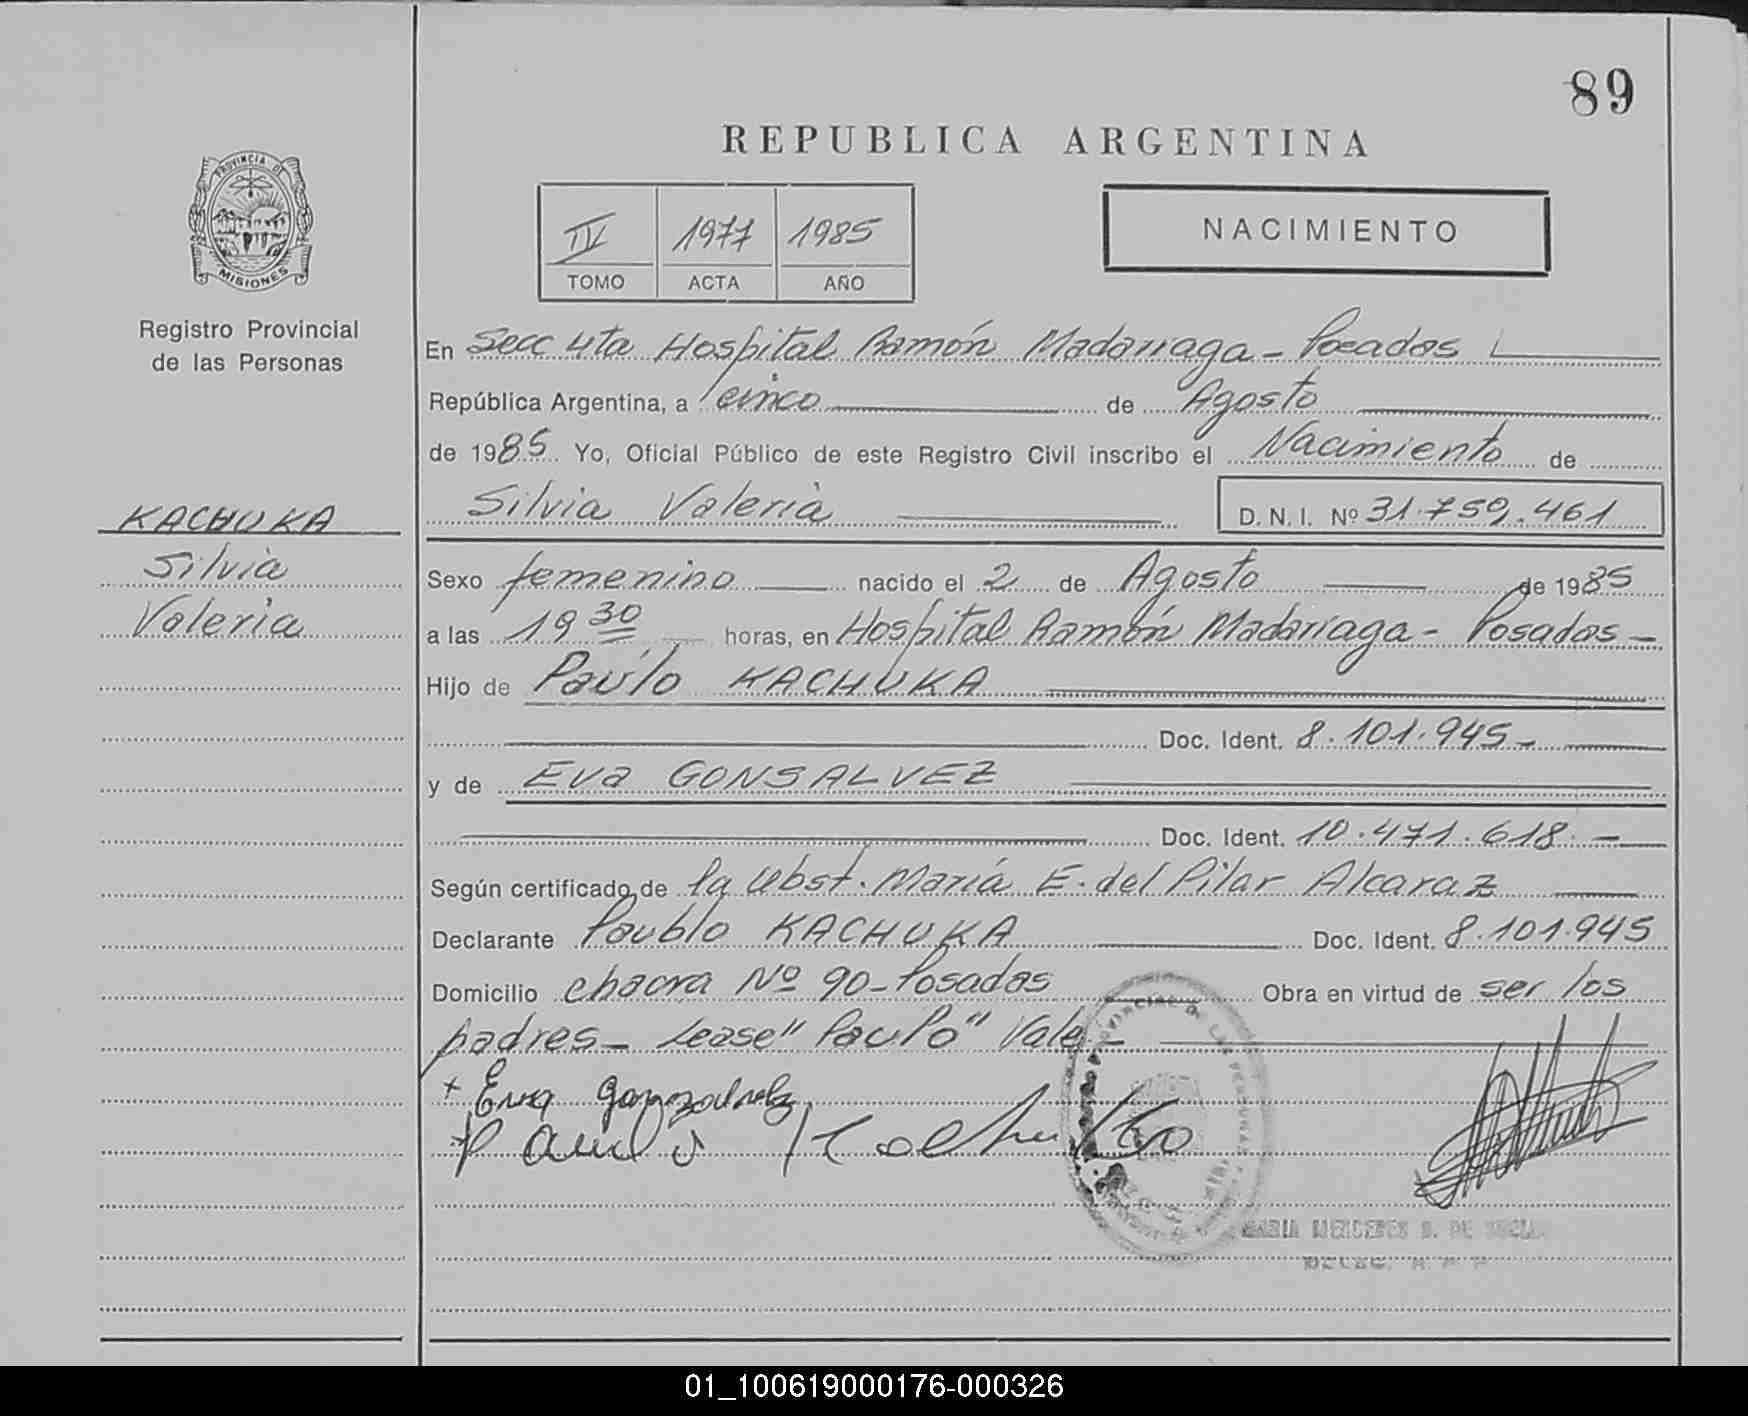 89
REPUBLICA ARGENTINA
PROVINCIA DE
MISIONES
Registro Provincial
de las Personas
IV 1977 1985
TOMO ACTA AÑO
NACIMIENTO
En Secc 4ta Hospital Ramón Madarriaga - Posadas
República Argentina, a cinco de Agosto
de 1985 Yo, Oficial Público de este Registro Civil inscribo el Nacimiento de
Silvia Valeria D. N. I. Nº 31.759.461
KACHUKA
Silvia
Valeria
Sexo femenino nacido el 2 de Agosto de 1985
a las 19 30 horas, en Hospital Ramón Madarriaga - Posadas -
Hijo de Paulo KACHUKA
Doc. Ident. 8.101.945 -
y de Eva GONSALVEZ
Doc. Ident. 10.471.618. -
Según certificado de la Obst. María E. del Pilar Alcaraz
Declarante Pablo KACHUKA Doc. Ident. 8.101.945
Domicilio chacra Nº 90 - Posadas Obra en virtud de ser los
padres - Lease "Paulo" Vale -
+ Eva
MARIA MERCEDES
01_100619000176-000326